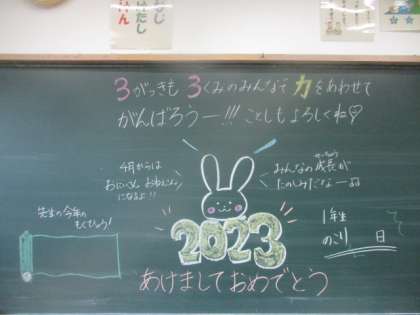 3がっきも 3くみのみんなで 力をあわせて
がんばろうー!!! ことしもよろしくね♡
4月からは
おにいさん おねえさん
になるよ!!
みんなの成長が
せいちょう
たのしみだな〜
先生の今年の
もくひょう!
2023
1年生
のこり 日
あけましておめでとう